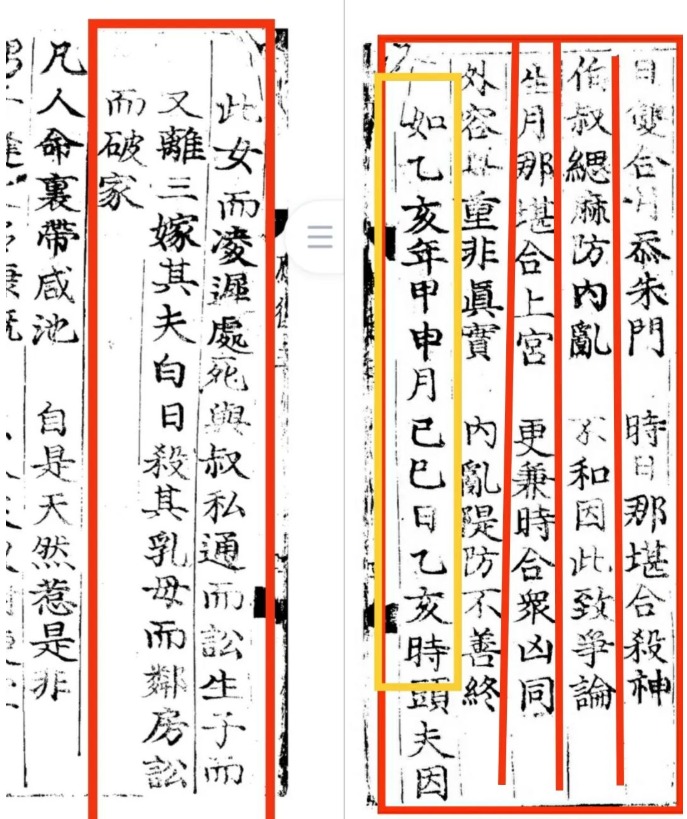 日雙合月忝朱門　時日那堪合殺神
伯叔緦麻防內亂　不和因此致爭論
生月那堪合上宮　更兼時合衆凶同
外容以重非眞實　內亂隄防不善終
如乙亥年甲申月己巳日乙亥時頭夫因
此女而凌遲處死與叔私通而訟生子而
又離三嫁其夫白日殺其乳母而鄰房訟
而破家
凡人命裏帶咸池　自是天然惹是非